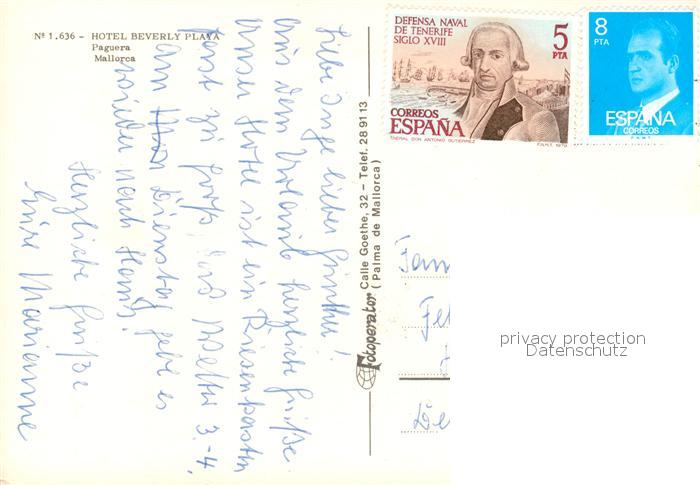 Nº 1.636 - HOTEL BEVERLY PLAYA
Paguera
Mallorca
Liebe Inge lieber Günther!
Aus dem Urlaub herzliche Grüße.
Unser Hotel ist ein Riesenkasten
fast zu groß. Das Wetter 3-4.
Am Dienstag geht es
wieder nach Haus.
Herzliche Grüße
Eure Marianne
Fotoperator Calle Goethe, 32 - Telef. 28 91 13
(Palma de Mallorca)
DEFENSA NAVAL
DE TENERIFE
SIGLO XVIII
5
PTA
CORREOS
ESPAÑA
GENERAL DON ANTONIO GUTIERREZ
F.N.M.T. 1979
8
PTA
ESPAÑA
CORREOS
F.N.M.T.
Fam
privacy protection
Datenschutz